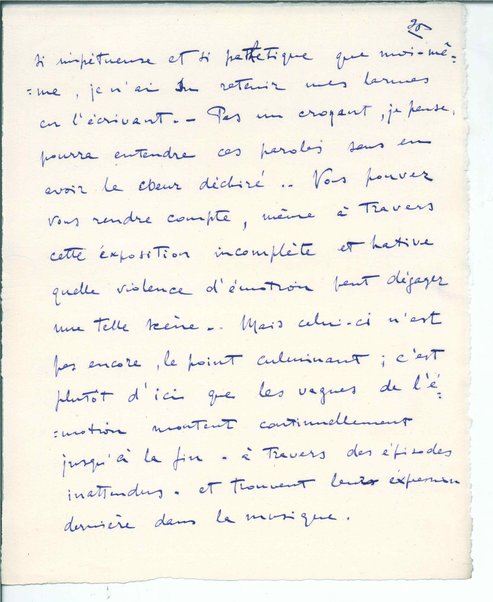 20
si impétueuse et si pathétique que moi-mê-
=me, je n'ai su retenir mes larmes
en l'écrivant.- Pas un croyant, je pense,
pourra entendre ces paroles sans en
avoir le cœur déchiré .. Vous pouvez
vous rendre compte, même à travers
cette éxposition incomplète et hative
quelle violence d'émotion peut dégager
une telle scène... Mais celui-ci n'est
pas encore, le point culminant ; c'est
plutôt d'ici que les vagues de l'é-
=motion montent continuellement
jusqu'à la fin - à travers des épisodes
inattendus - et trouvent leur expression
dernière dans la musique.